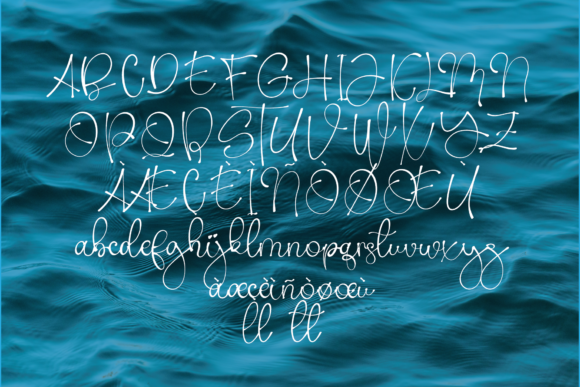 ABCDEFGHIJKLMN
OPQRSTUVWXYZ
ÀÆÇÈÌÑÒØŒÙ
abcdefghijklmnopqrstuvwxyz
àæçèìñòøœù
ll tt